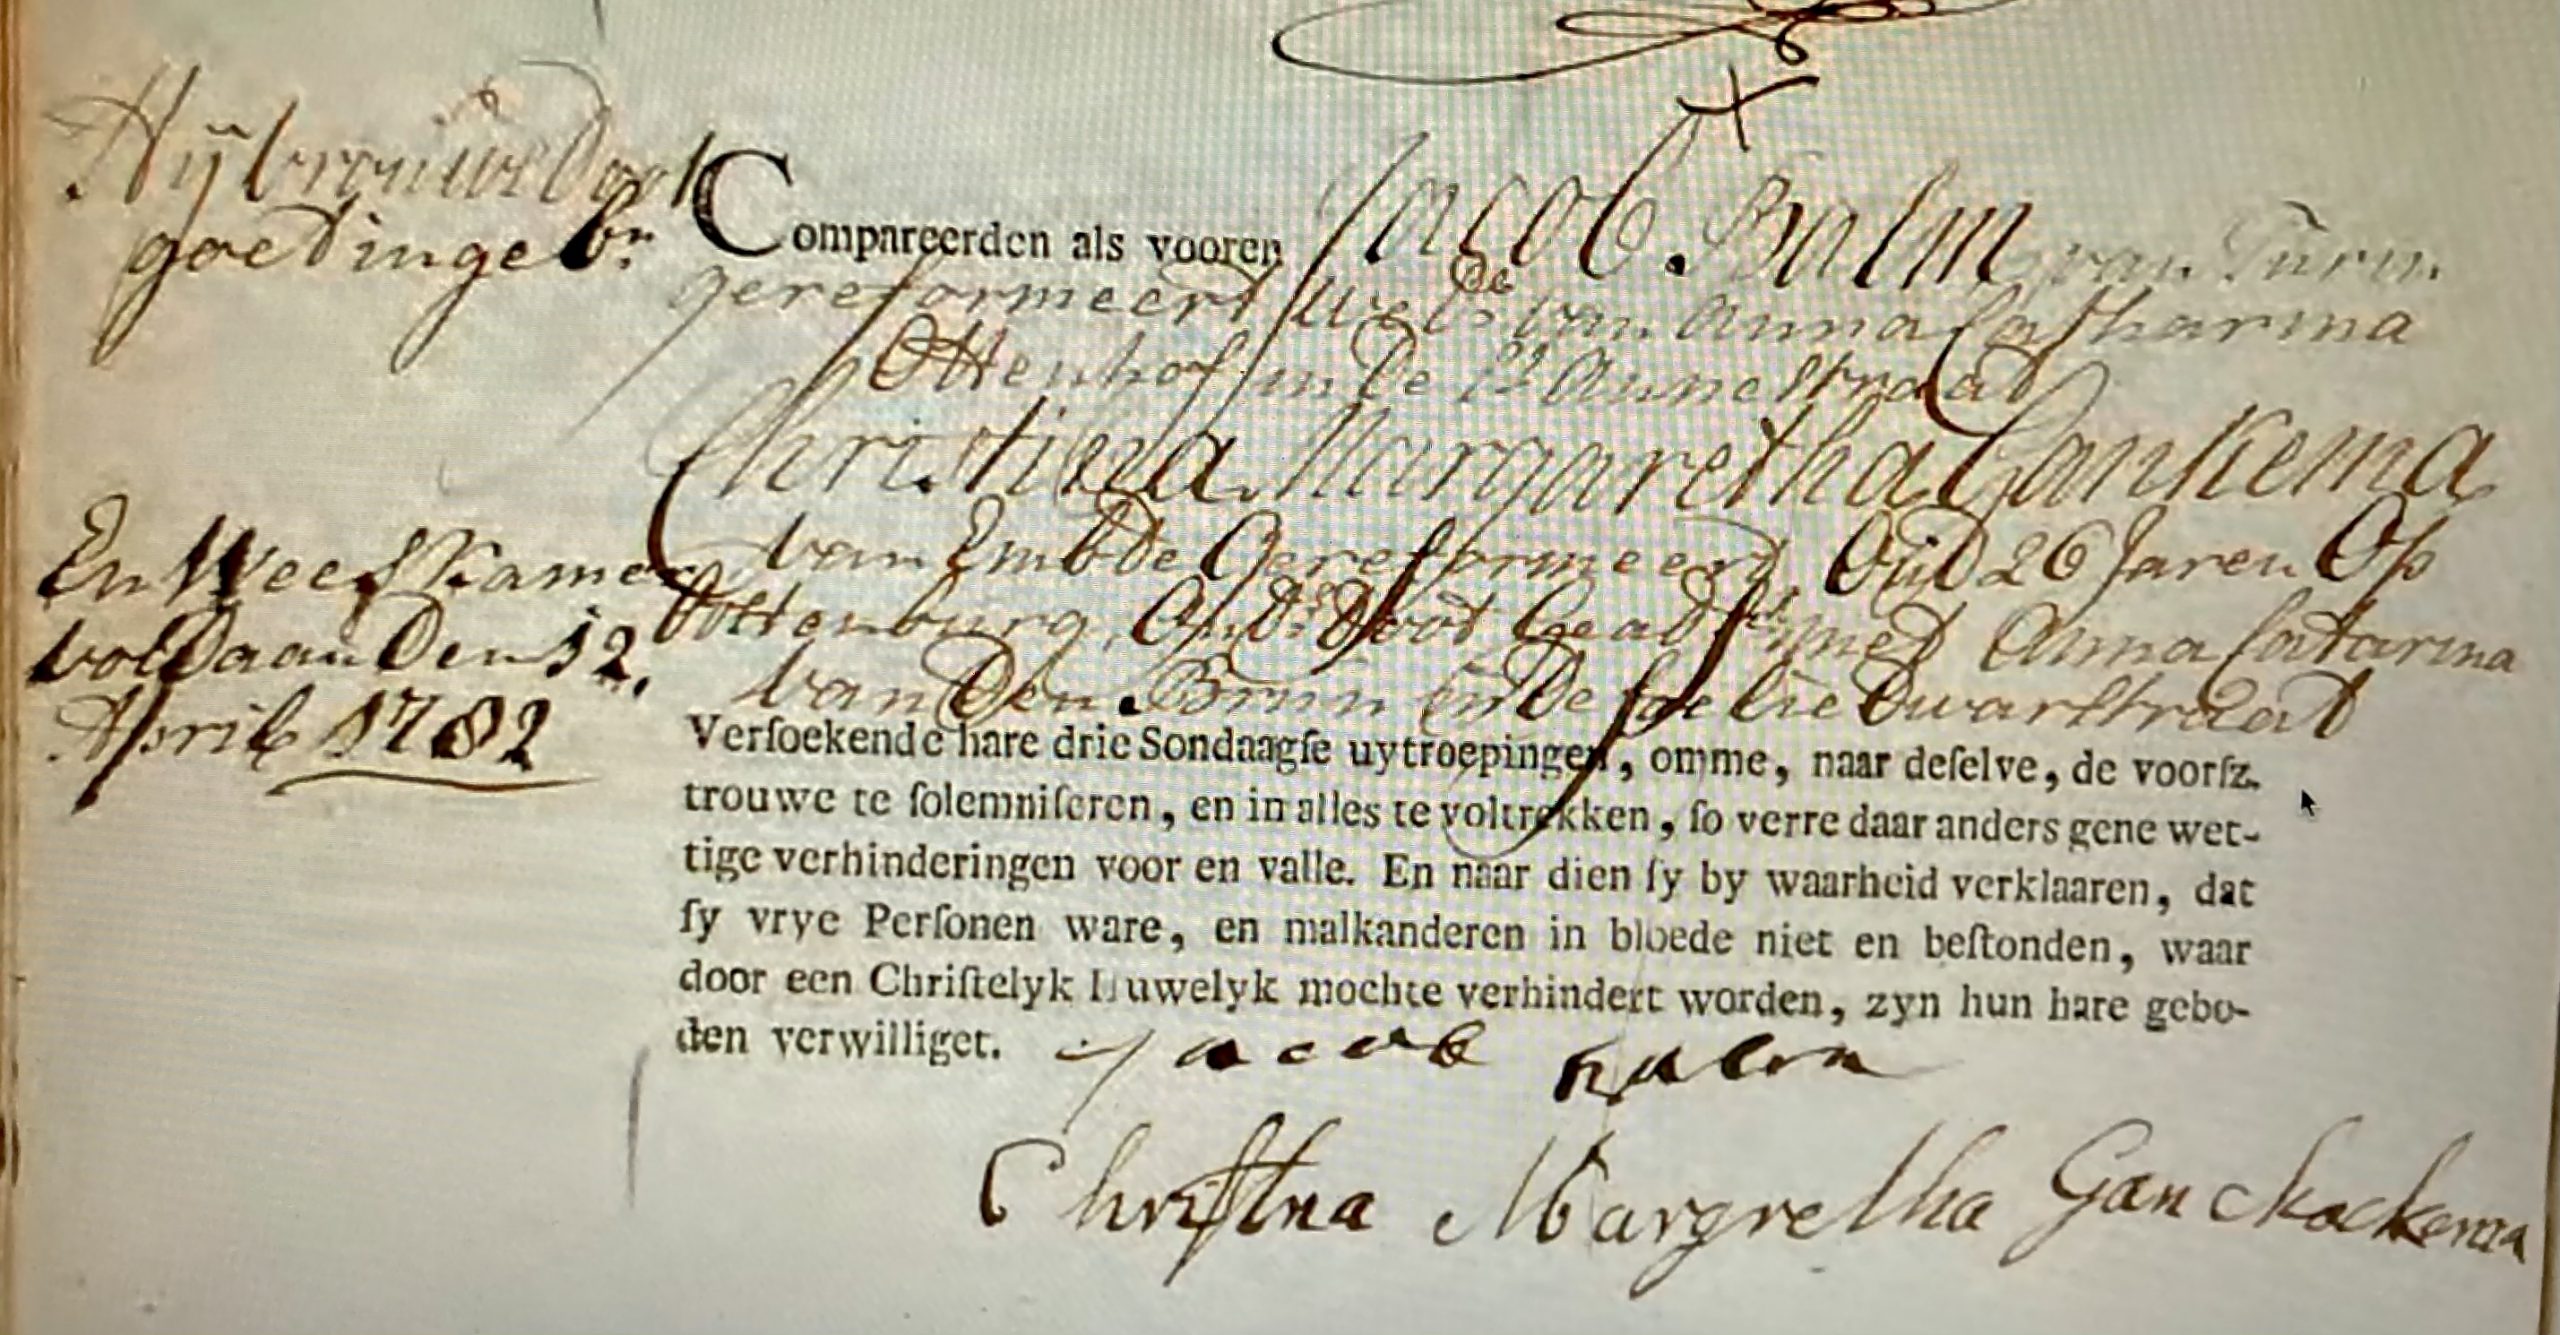 Hij
goet ingebr.
En Weeskamer
voldaan den 12.
April 1782
Compareerden als vooren Jacob Balm van Turin
gereformeert wed.e van Anna Catharina
Ottenhof in de St Annestraat
Christina Margaretha Gankema
van Embde Gereformeerd, Oud 26 Jaren Op
Ottenburg, Oud.s Doot Geads.t met Anna Catarina
van den Brin in de foelie Dwarstraat
Verſoekende hare drie Sondaagſe uytroepingen, omme, naar deſelve, de voorſz.
trouwe te ſolemniſeren, en in alles te voltrekken, ſo verre daar anders gene wet-
tige verhinderingen voor en valle. En naar dien ſy by waarheid verklaaren, dat
ſy vrye Perſonen ware, en malkanderen in bloede niet en beſtonden, waar
door een Chriſtelyk Huwelyk mochte verhindert worden, zyn hun hare gebo-
den verwilliget. Jacob Balm
Christina Margretha Ganckackema